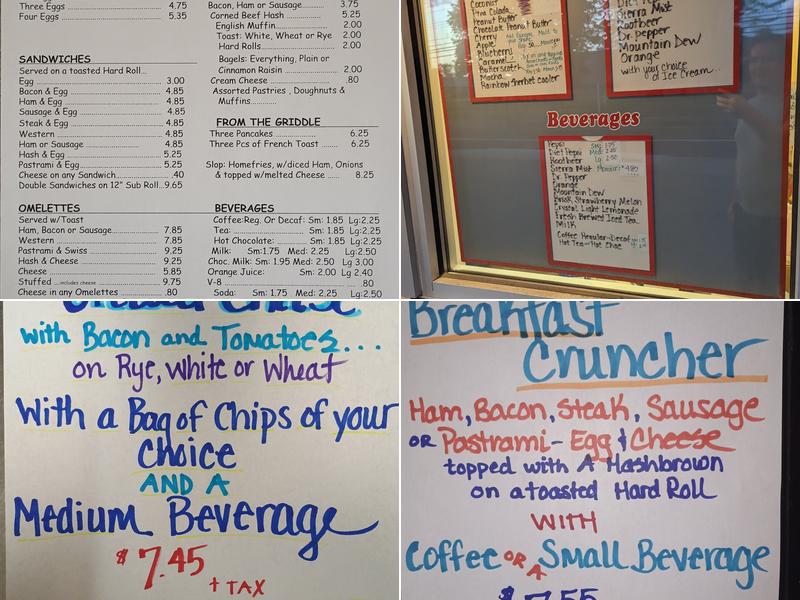 Three Eggs 4.75
Four Eggs 5.35
SANDWICHES
Served on a toasted Hard Roll...
Egg 3.00
Bacon & Egg 4.85
Ham & Egg 4.85
Sausage & Egg 4.85
Steak & Egg 4.85
Western 4.85
Ham or Sausage 4.85
Hash & Egg 5.25
Pastrami & Egg 5.25
Cheese on any Sandwich .40
Double Sandwiches on 12" Sub Roll...9.65
OMELETTES
Served w/Toast
Ham, Bacon or Sausage 7.85
Western 7.85
Pastrami & Swiss 9.25
Hash & Cheese 9.25
Cheese 5.85
Stuffed ...includes cheese 9.75
Cheese in any Omelettes .80
Bacon, Ham or Sausage 3.75
Corned Beef Hash 5.25
English Muffin 2.00
Toast: White, Wheat or Rye 2.00
Hard Rolls 2.00
Bagels: Everything, Plain or
Cinnamon Raisin 2.00
Cream Cheese .80
Assorted Pastries , Doughnuts &
Muffins
FROM THE GRIDDLE
Three Pancakes 6.25
Three Pcs of French Toast 6.25
Slop: Homefries, w/diced Ham, Onions
& topped w/melted Cheese 8.25
BEVERAGES
Coffee:Reg. Or Decaf: Sm: 1.85 Lg:2.25
Tea: Sm: 1.85 Lg:2.25
Hot Chocolate: Sm: 1.85 Lg:2.25
Milk: Sm:1.75 Med: 2.25 Lg:2.50
Choc. Milk: Sm: 1.95 Med: 2.50 Lg 3.00
Orange Juice: Sm: 2.00 Lg 2.40
V-8 .80
Soda: Sm: 1.75 Med: 2.25 Lg:2.50
Coconut
Pina Colada
Peanut Butter
Chocolate Peanut Butter
Cherry
Apple
Blueberry
Caramel
Butterscotch
Mocha
Rainbow Sherbet Cooler
Diet Pepsi
Sierra Mist
Rootbeer
Dr. Pepper
Mountain Dew
Orange
with your choice
of Ice Cream...
Beverages
Pepsi
Diet Pepsi
Rootbeer
Sierra Mist
Dr. Pepper
Orange
Mountain Dew
Brisk Strawberry Melon
Crystal Light Lemonade
Fresh Brewed Iced Tea
Milk
Coffee Regular-Decaf
Hot Tea-Hot Choc
with Bacon and Tomatoes...
on Rye, White or Wheat
With a Bag of Chips of your
Choice
AND A
Medium Beverage
$7.45
+ TAX
Breakfast
Cruncher
Ham, Bacon, Steak, Sausage
OR Pastrami - Egg & Cheese
topped with A Hashbrown
on a toasted Hard Roll
WITH
Coffee OR A Small Beverage